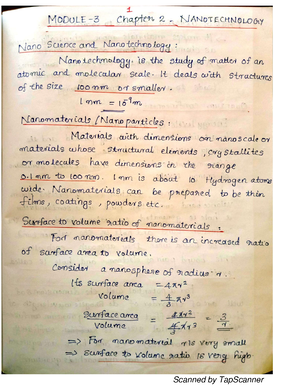 1
MODULE-3 Chapter 2. NANOTECHNOLOGY
Nano Science and Nanotechnology :
Nanotechnology is the study of matter of an
atomic and molecular scale. It deals with structures
of the size 100nm or smaller.
1 nm = 10⁻⁹m
Nanomaterials / Nanoparticles :
Materials with dimensions on nanoscale or
materials whose structural elements, crystallites
or molecules have dimensions in the range
0.1 nm to 100 nm. 1 nm is about 10 Hydrogen atoms
wide. Nanomaterials can be prepared to be thin
films, coatings, powders etc.
Surface to volume ratio of nanomaterials :
For nanomaterials there is an increased ratio
of surface area to volume.
Consider a nanosphere of radius r.
Its surface area = 4πr²
volume = 4/3 πr³
Surface area / Volume = 4πr² / 4/3 πr³ = 3/r
⇒ For nanomaterial r is very small
⇒ Surface to volume ratio is very high
Scanned by TapScanner